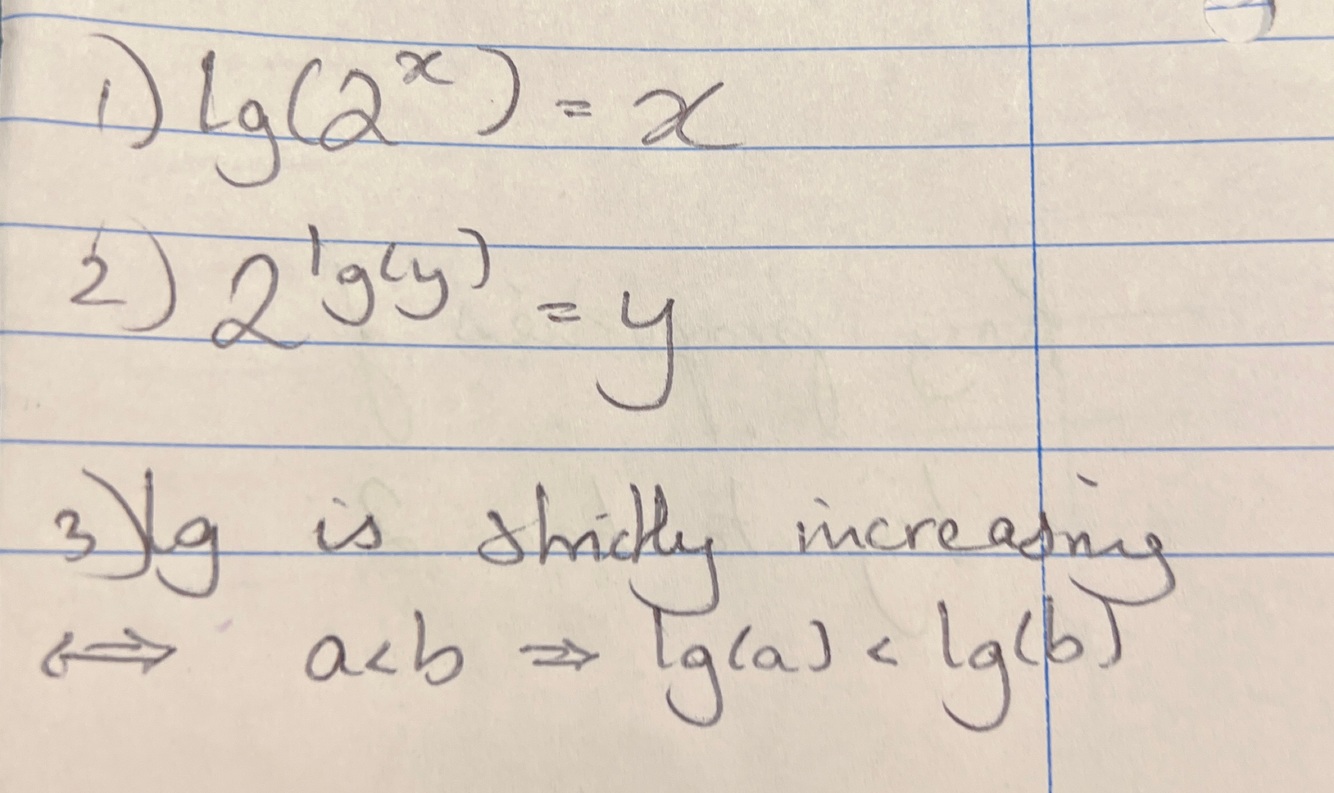 1) lg(2^x) = x
2) 2^lg(y) = y
3) lg is strictly increasing
⟺ a<b ⇒ lg(a) < lg(b)